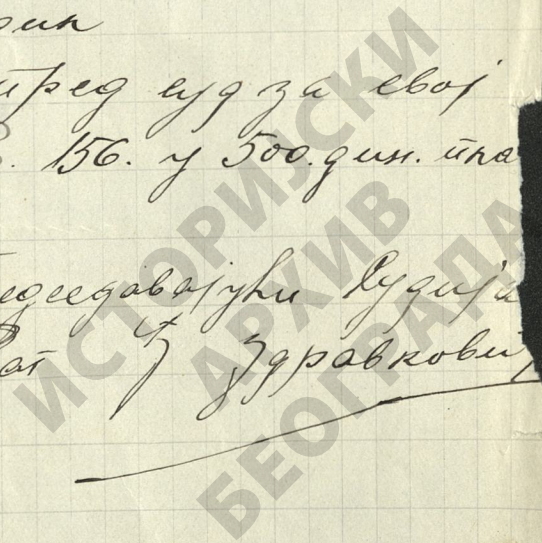 рик
пред суд за свој
156. у 500. дин. пла
едседавајући Судија
Здравковић
ИСТОРИЈСКИ
АРХИВ
БЕОГРАДА